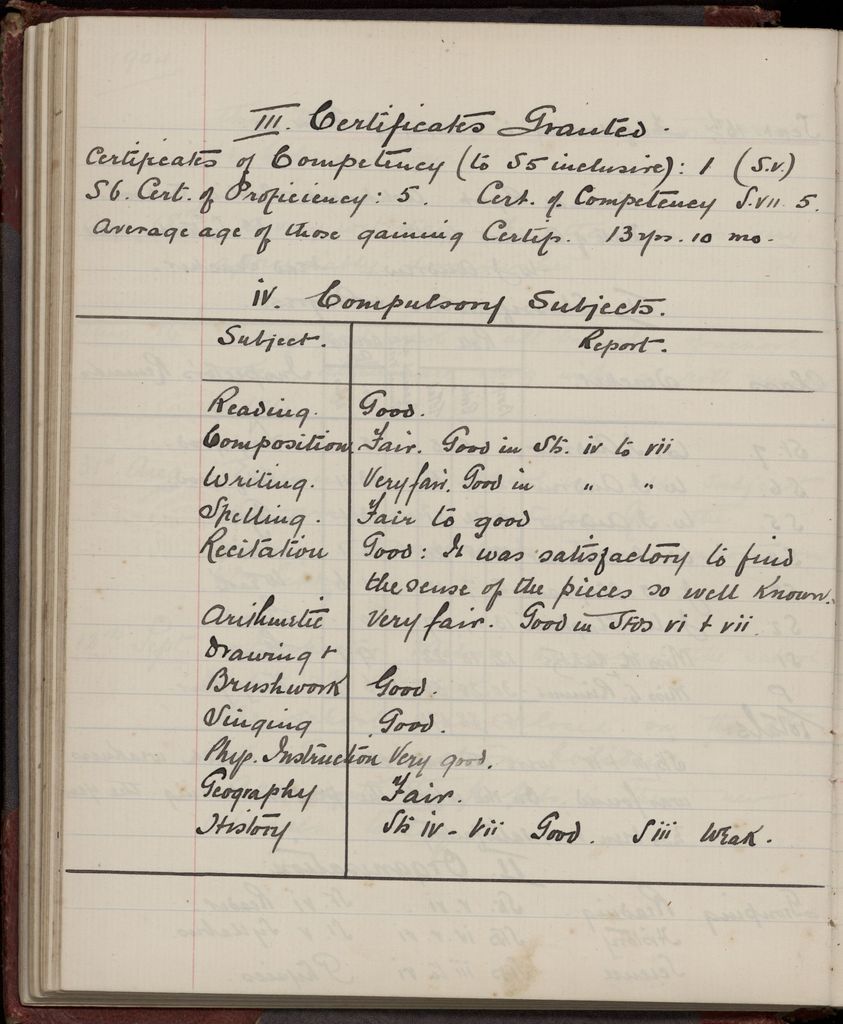 III. Certificates Granted.
Certificates of Competency (to S5 inclusive): 1 (S.V.)
S6. Cert. of Proficiency: 5. Cert. of Competency S.VII 5.
Average age of those gaining Certifs. 13 yrs. 10 mo.
iv. Compulsory Subjects.
Subject. Report.
Reading. Good.
Composition Fair. Good in Sts. iv to vii
Writing. Very fair. Good in " "
Spelling. Fair to good
Recitation Good: It was satisfactory to find
the sense of the pieces so well known.
Arithmetic Very fair. Good in Stds vi + vii.
Drawing +
Brushwork Good.
Singing Good.
Phys. Instruction Very good.
Geography Fair.
History Sts iv - vii Good. S iii Weak.